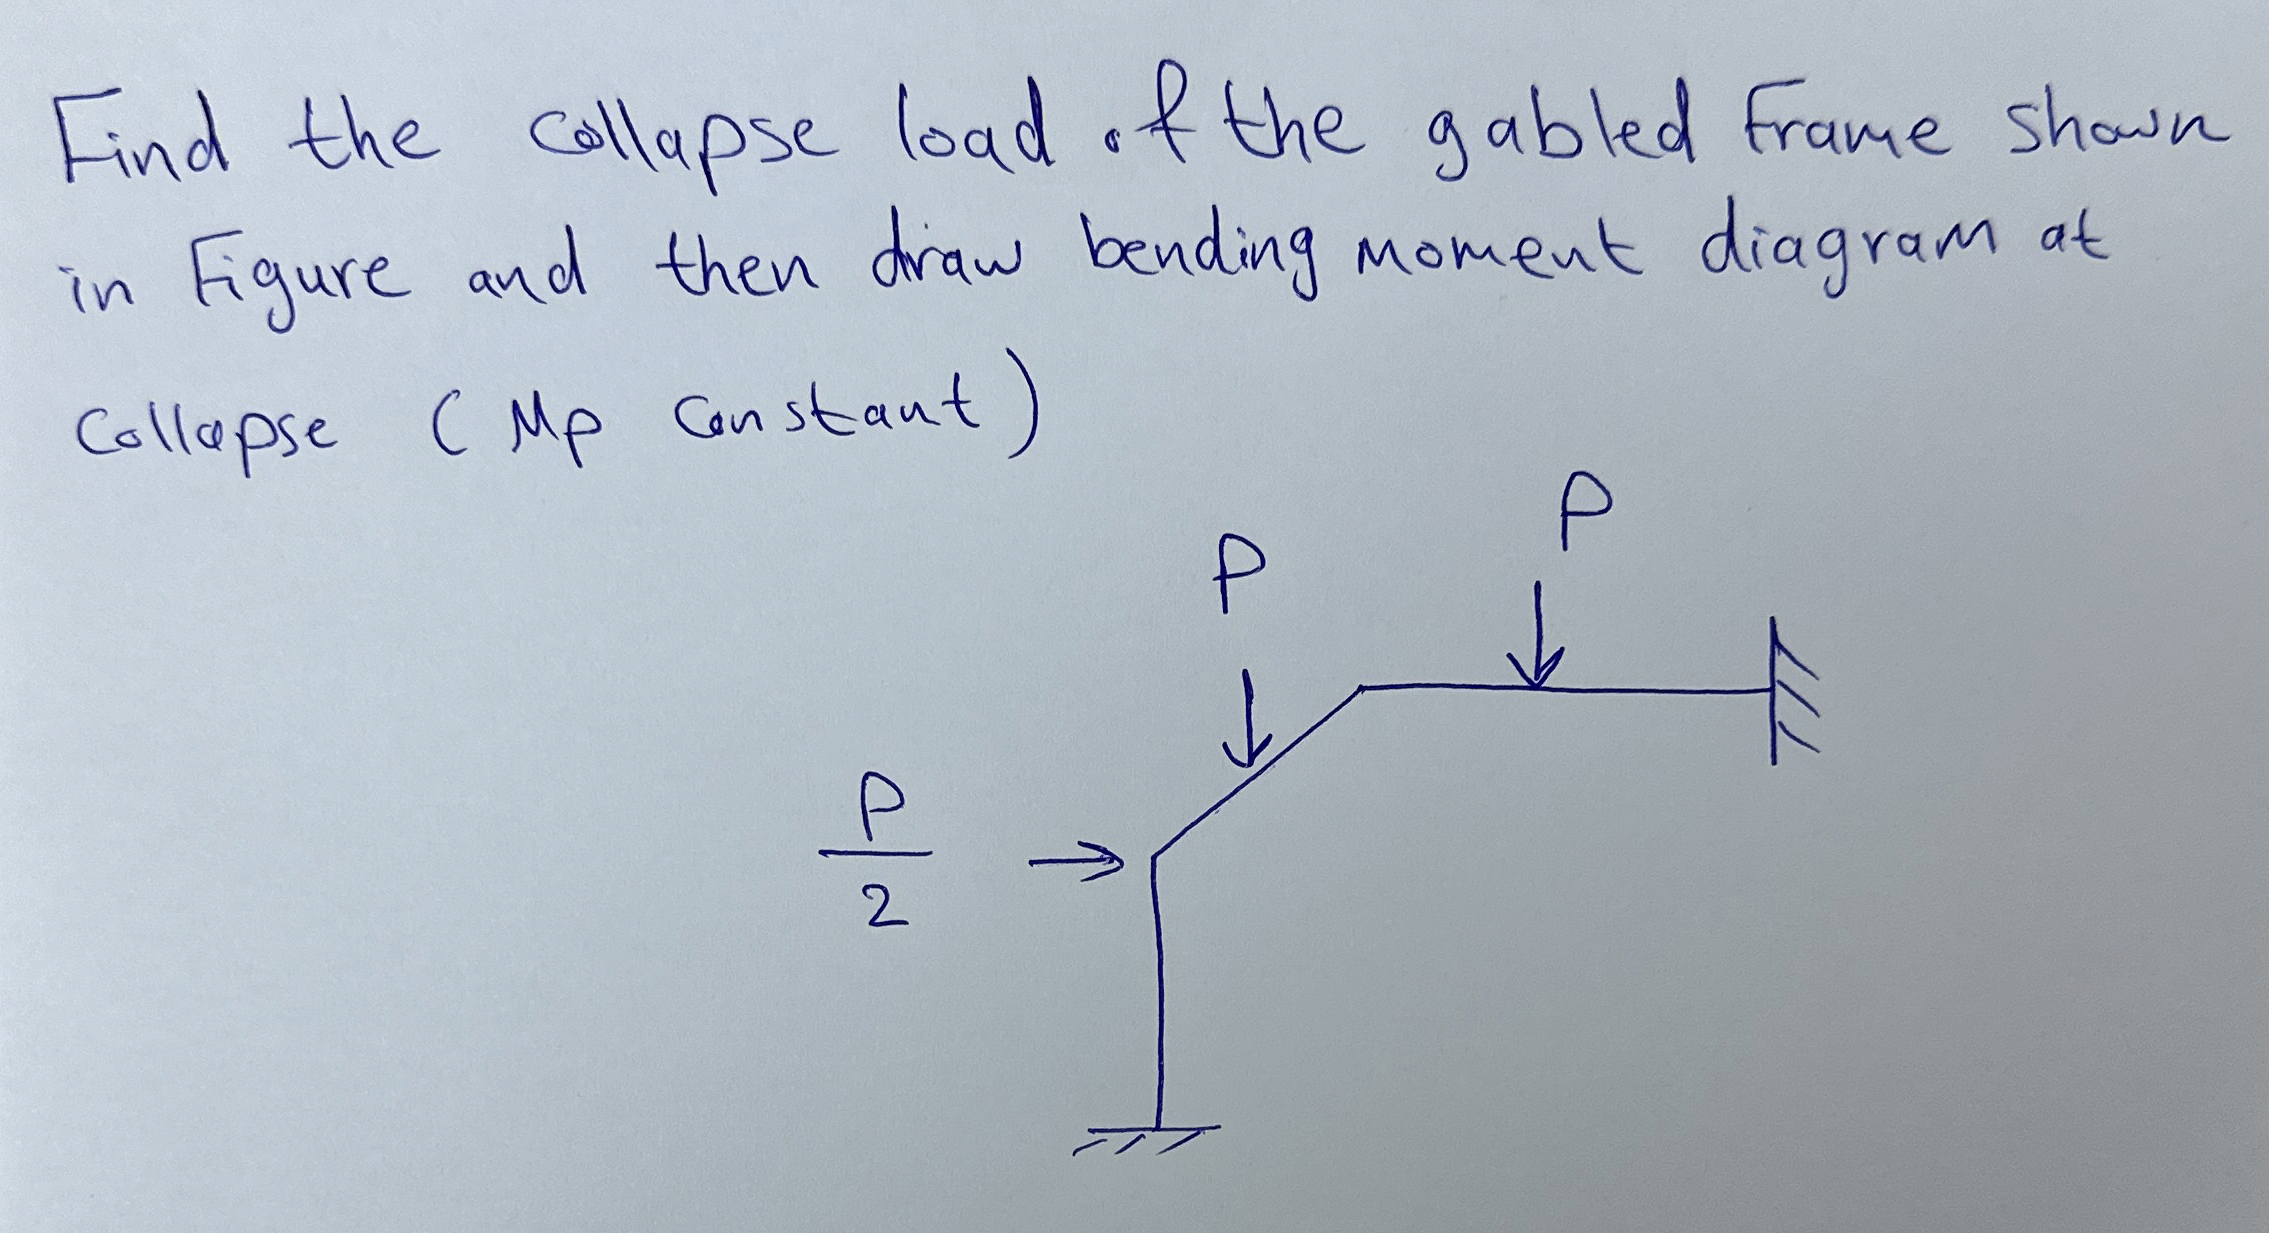 Find the collapse load of the gabled Frame shown
in Figure and then draw bending moment diagram at
Collapse (Mp Constant)
P
P
P
2